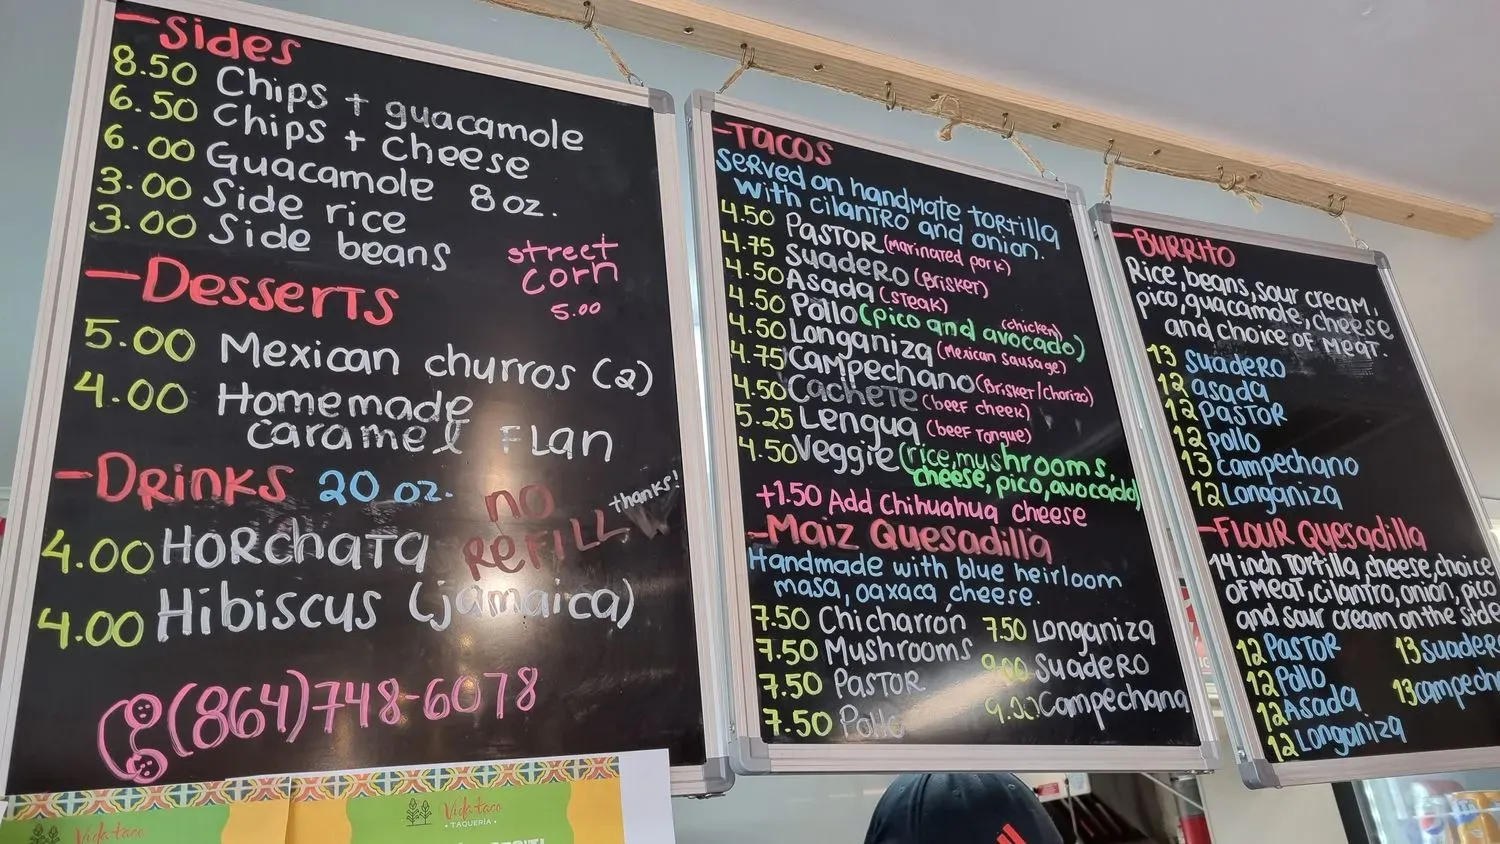 -Sides
8.50 Chips + guacamole
6.50 Chips + cheese
6.00 Guacamole 8oz.
3.00 Side rice
3.00 Side beans
street
corn
5.00
-Desserts
5.00 Mexican churros (2)
4.00 Homemade
caramel FLan
-Drinks 20 oz.
NO
REFILL
thanks!
4.00 HORchaTa
4.00 Hibiscus (jamaica)
(864)748-6078
Vida taco
Vida taco
• TAQUERÍA •
-Tacos
served on handmate tortilla
with cilantro and onion.
4.50 PasTOR (marinated pork)
4.75 SuadeRO (Brisket)
4.50 Asada (steak)
4.50 Pollo (pico and avocado)
(chicken)
4.50 Longaniza (Mexican sausage)
4.75 Campechano (Brisket/chorizo)
4.50 CacheTe (beef cheek)
5.25 Lengua (beef Tongue)
4.50 Veggie (rice, mushrooms,
cheese, pico, avocado)
+1.50 Add Chihuahua cheese
-Maiz Quesadilla
Handmade with blue heirloom
masa, oaxaca cheese.
7.50 Chicharrón 7.50 Longaniza
7.50 Mushrooms 9.00 SuadeRO
7.50 PasTOR 9.00 Campechana
7.50 Pollo
-BURRITO
Rice, beans, sour cream,
pico, guacamole, cheese
and choice of meat.
13 SuadeRO
12 asada
12 PasTOR
12 pollo
13 campechano
12 Longaniza
-FLOUR Quesadilla
14 inch Tortilla, cheese, choice
of meat, cilantro, onion, pico
and sour cream on the side
12 PasTOR 13 SuadeR
12 Pollo 13 campech
12 Asada
12 Longaniza